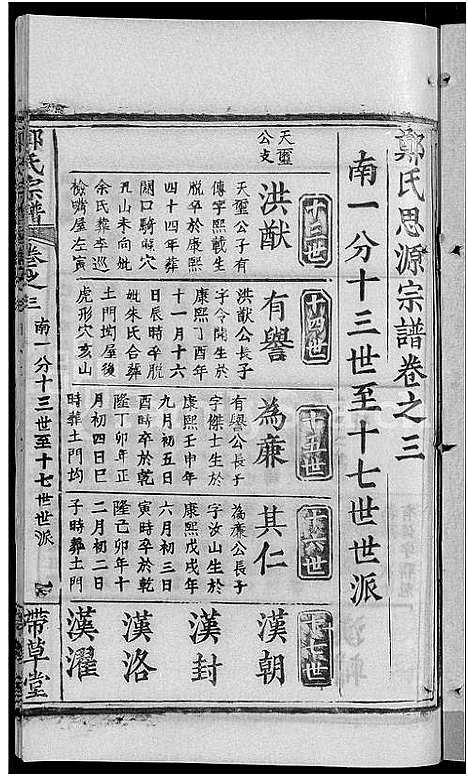 鄭氏思源宗譜卷之三
南一分十三世至十七世世派
十三世
天璽公支
洪猷
天璽公子有
傳字熙載生
脫卒於康熙
四十四年葬
関口騎暁穴
孔山未向妣
余氏葬李巡
檢嘴屋左寅
十四世
有譽
洪猷公長子
字令聞生於
康熙丁酉年
十一月十六
日辰時歿於
妣朱氏合葬
土門坳屋後
虎形穴亥山
十五世
為廉
有譽公長子
字傑士生於
康熙壬申年
九月初五日
酉時卒於乾
隆丁卯年正
月初四日巳
時葬土門均
十六世
其仁
為廉公長子
字汝山生於
康熙戊戌年
六月初三日
寅時卒於乾
隆己卯年十
二月初二日
子時葬土門
十七世
漢朝
漢封
漢洛
漢濯
鄭氏宗譜
卷之三
南一分十三世至十七世世派
帶草堂